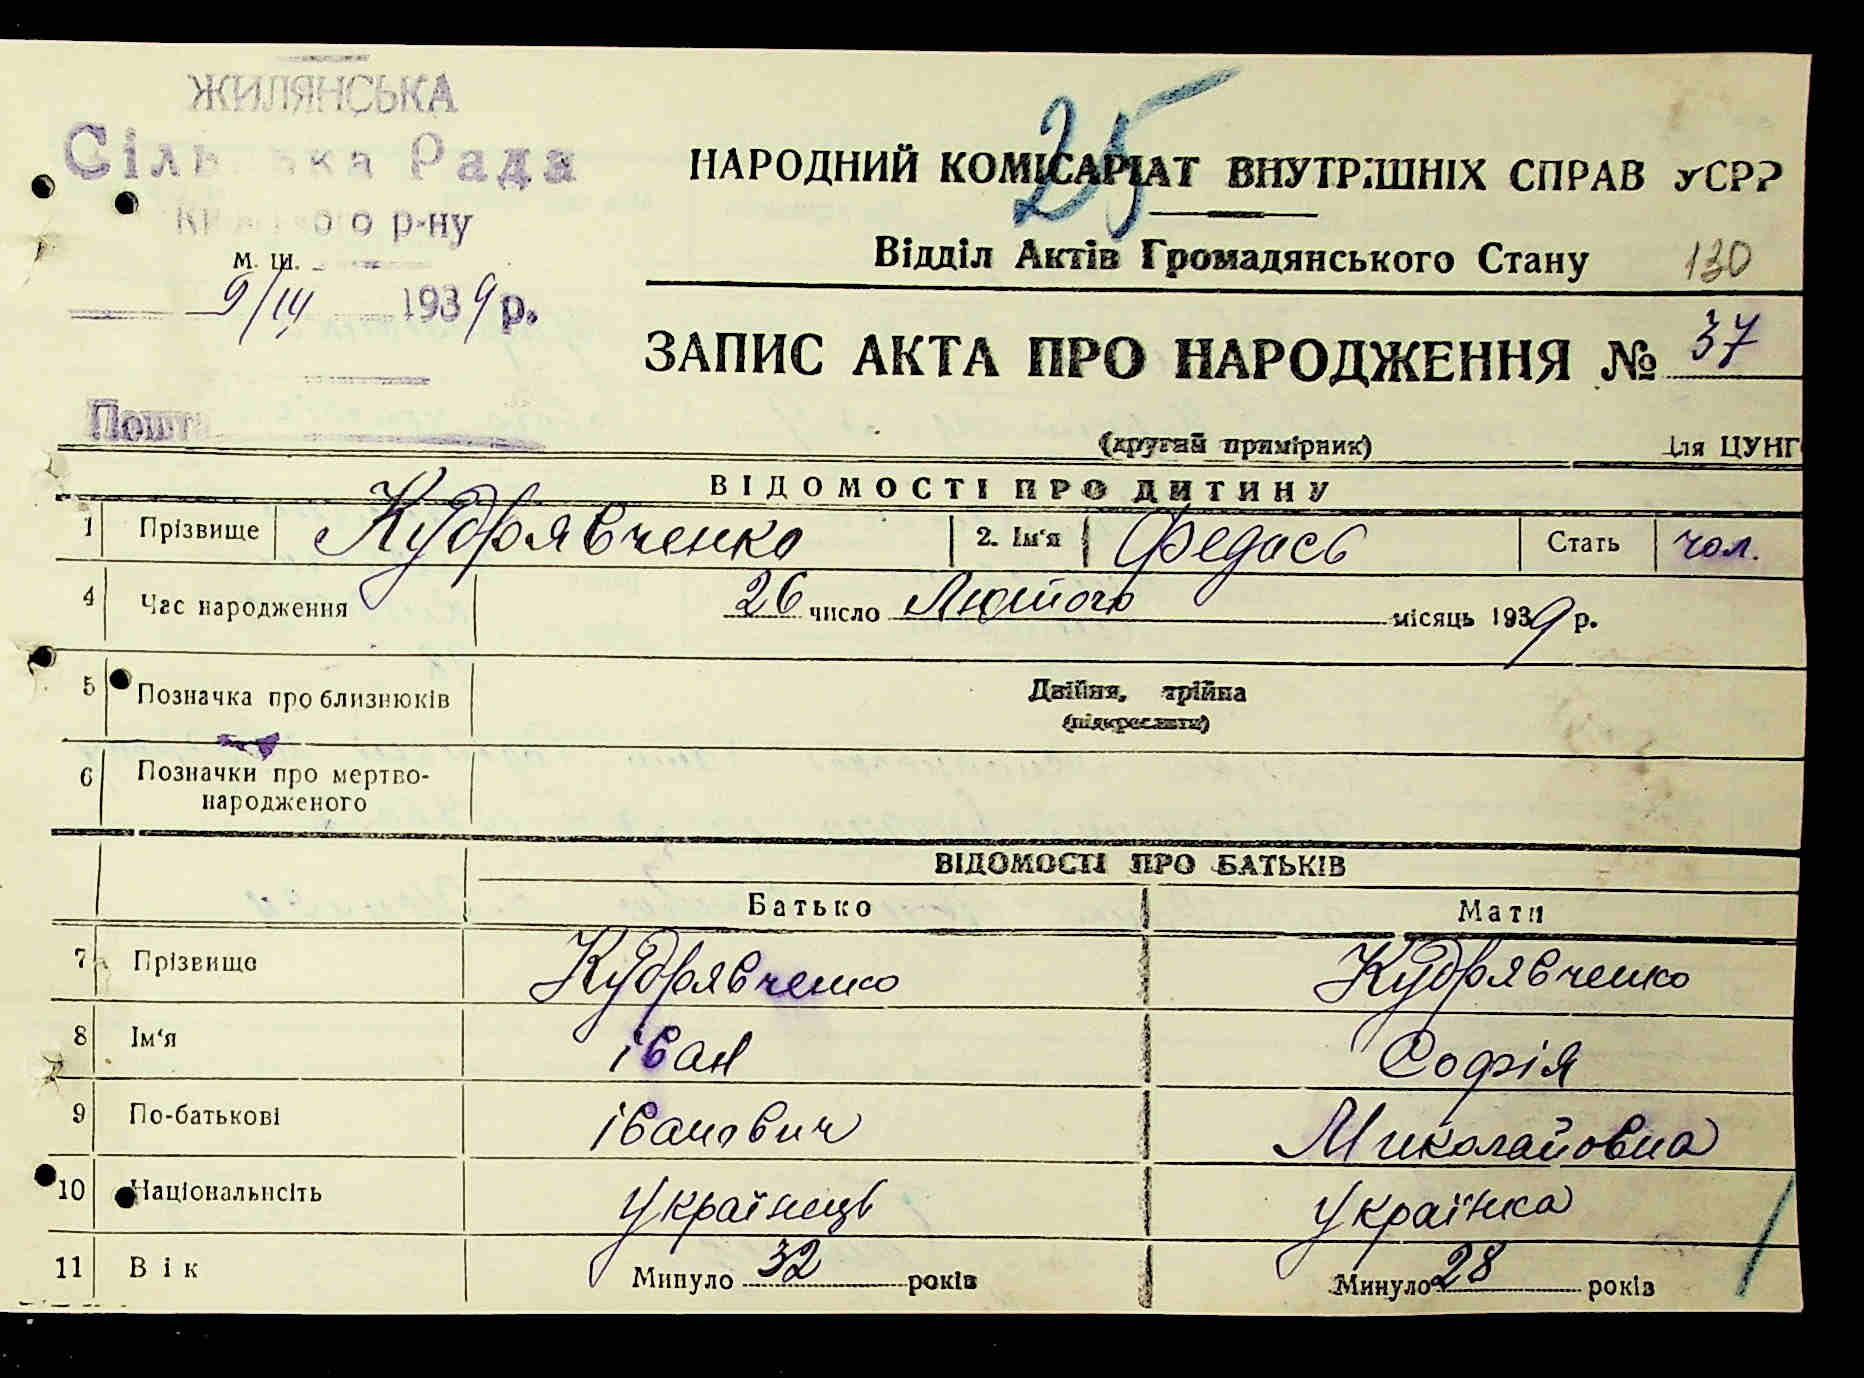 ЖИЛЯНСЬКА
Сільська Рада
р-ну
м. ш.
9/III 1939 р.
Пошта
25
НАРОДНИЙ КОМІСАРІАТ ВНУТРІШНІХ СПРАВ УСРР
Відділ Актів Громадянського Стану 130
ЗАПИС АКТА ПРО НАРОДЖЕННЯ № 37
(другий примірник) Для ЦУНГ
ВІДОМОСТІ ПРО ДИТИНУ
1 Прізвище Кудрявченко 2. Ім'я Федась Стать чол.
4 Час народження 26 число Лютого місяць 1939 р.
5 Позначка про близнюків Двійня, трійна
(підкреслити)
6 Позначки про мертво-
народженого
ВІДОМОСТІ ПРО БАТЬКІВ
Батько Мати
7 Прізвище Кудрявченко Кудрявченко
8 Ім'я іван Софія
9 По-батькові іванович Миколайовна
10 Національнсіть Українець Українка
11 Вік Минуло 32 років Минуло 28 років